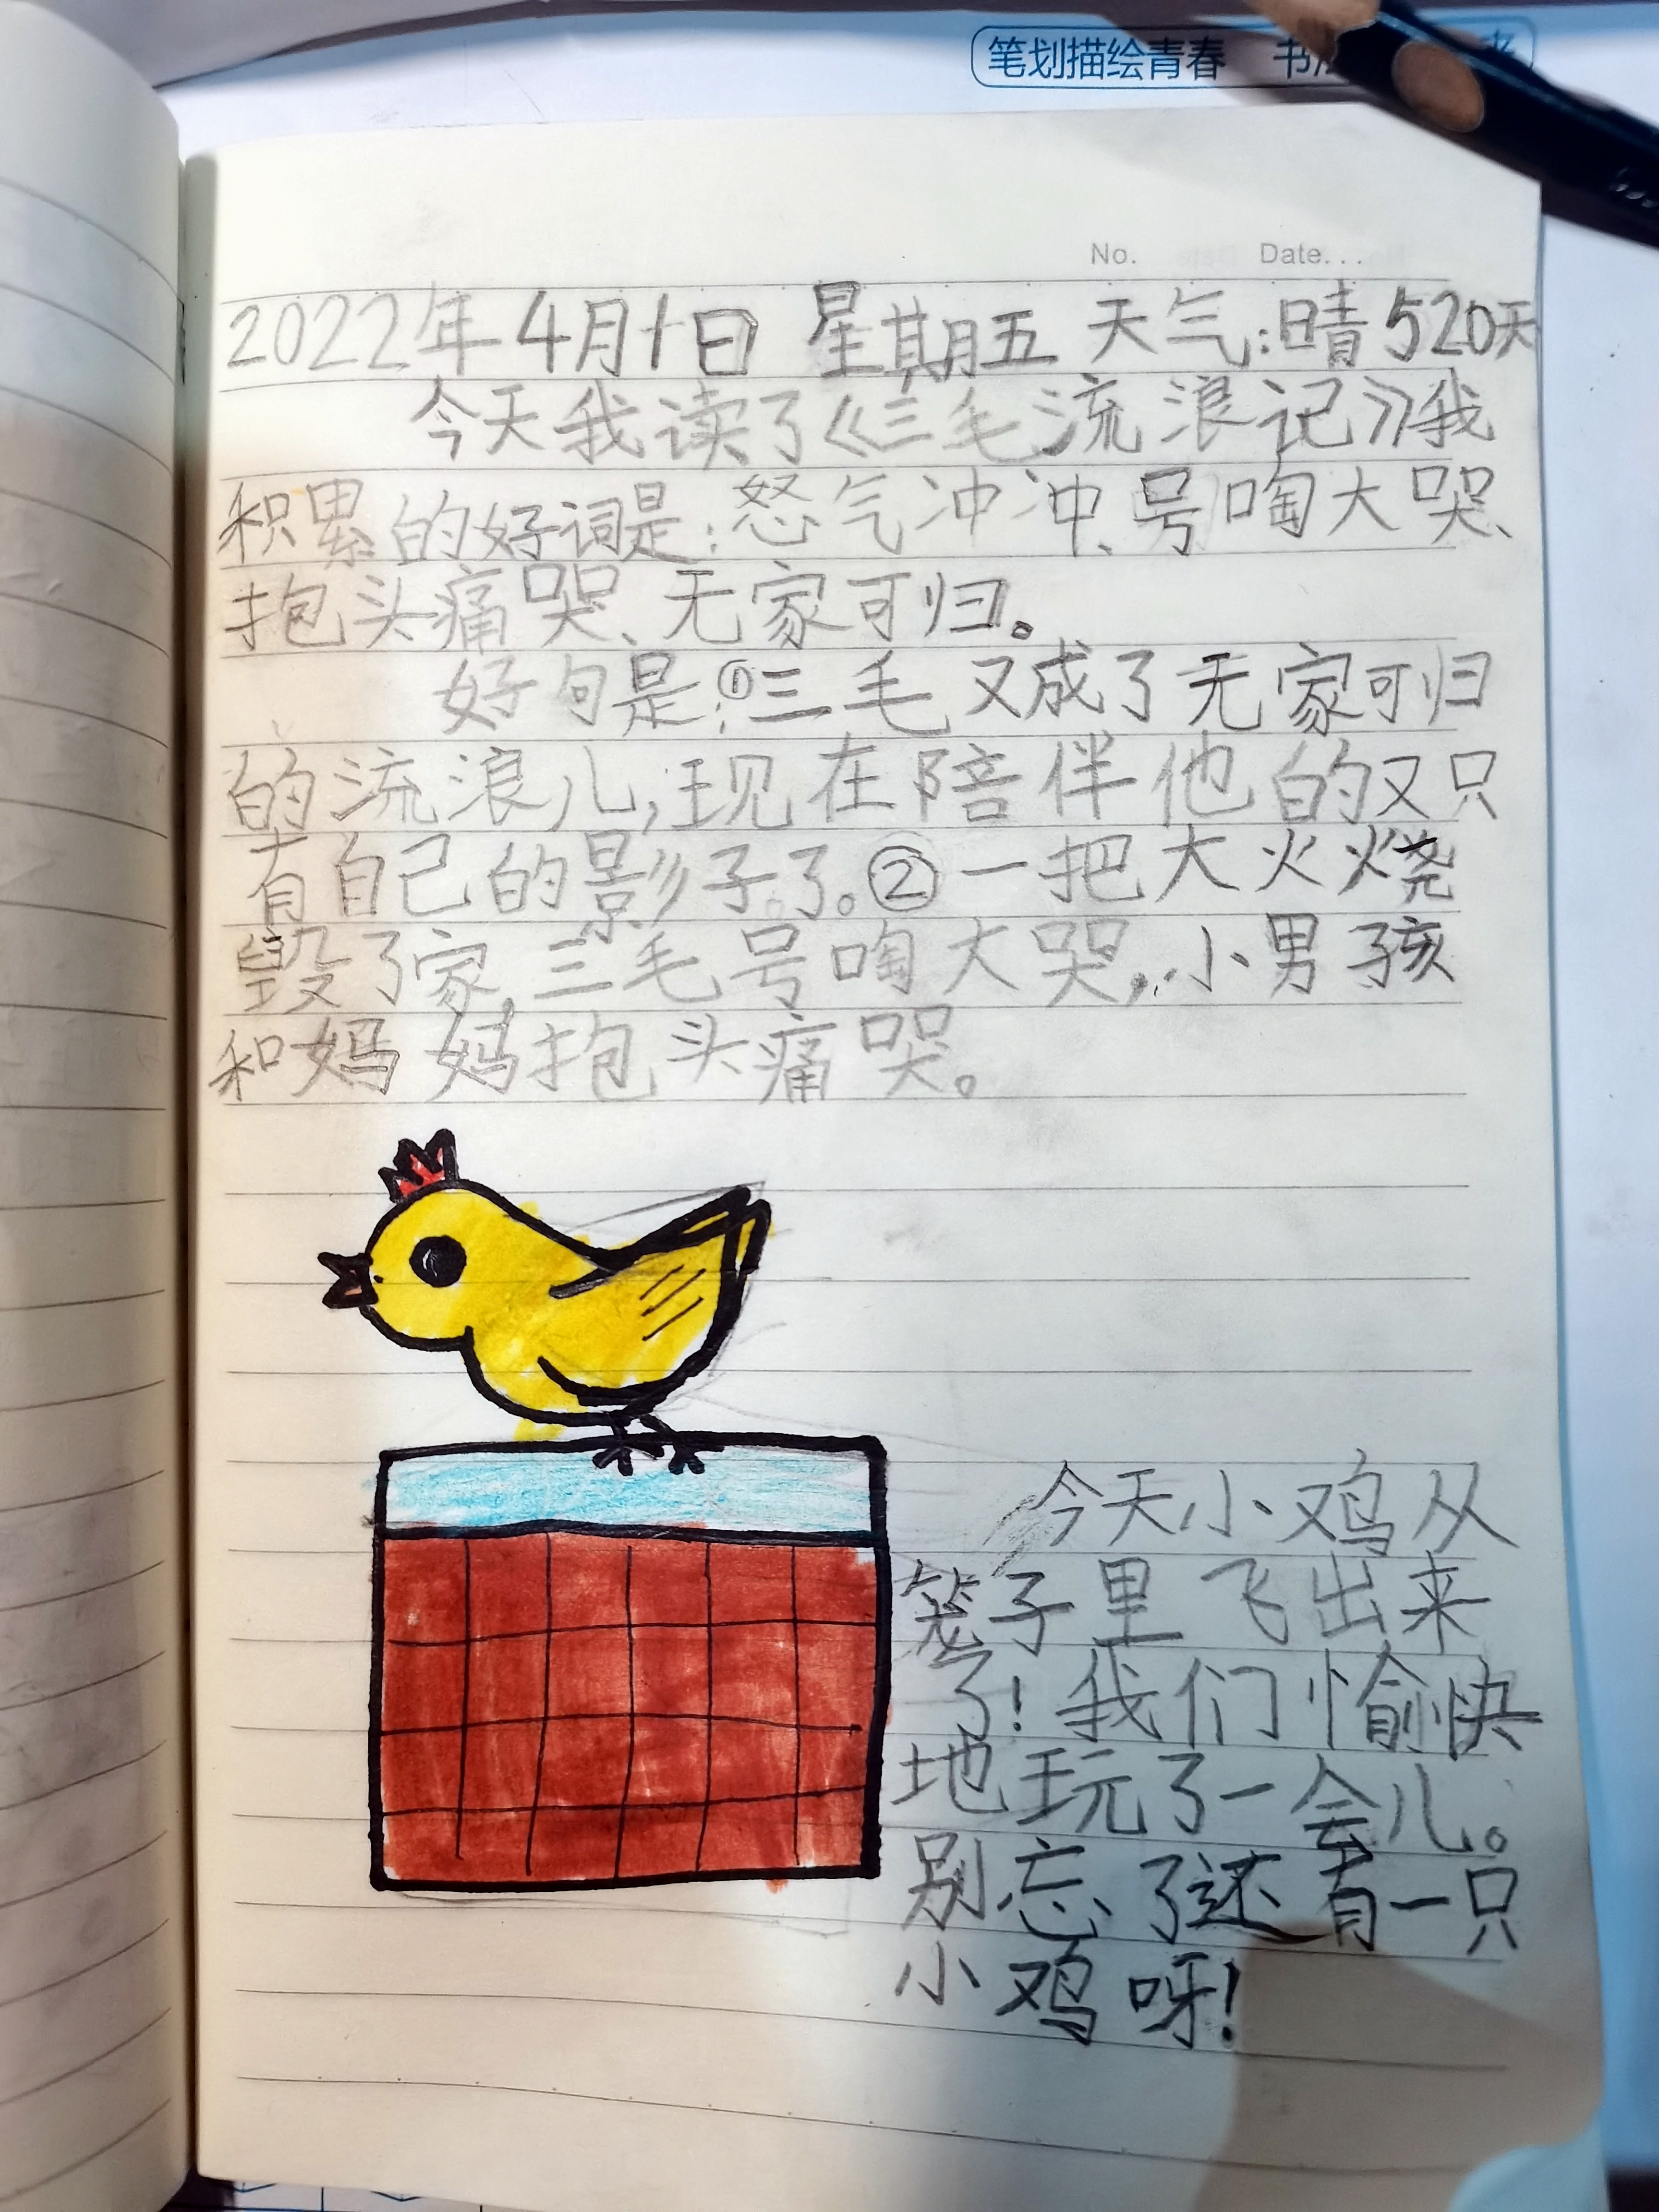 笔划描绘青春 书
No. Date...
2022年4月1日 星期五 天气:晴 520天
今天我读了《三毛流浪记》我
积累的好词是:怒气冲冲、号啕大哭、
抱头痛哭、无家可归。
好句是:①三毛又成了无家可归
的流浪儿,现在陪伴他的又只
有自己的影子了。②一把大火烧
毁了家,三毛号啕大哭,小男孩
和妈妈抱头痛哭。
今天小鸡从
笼子里飞出来
了!我们愉快
地玩了一会儿。
别忘了还有一只
小鸡呀!